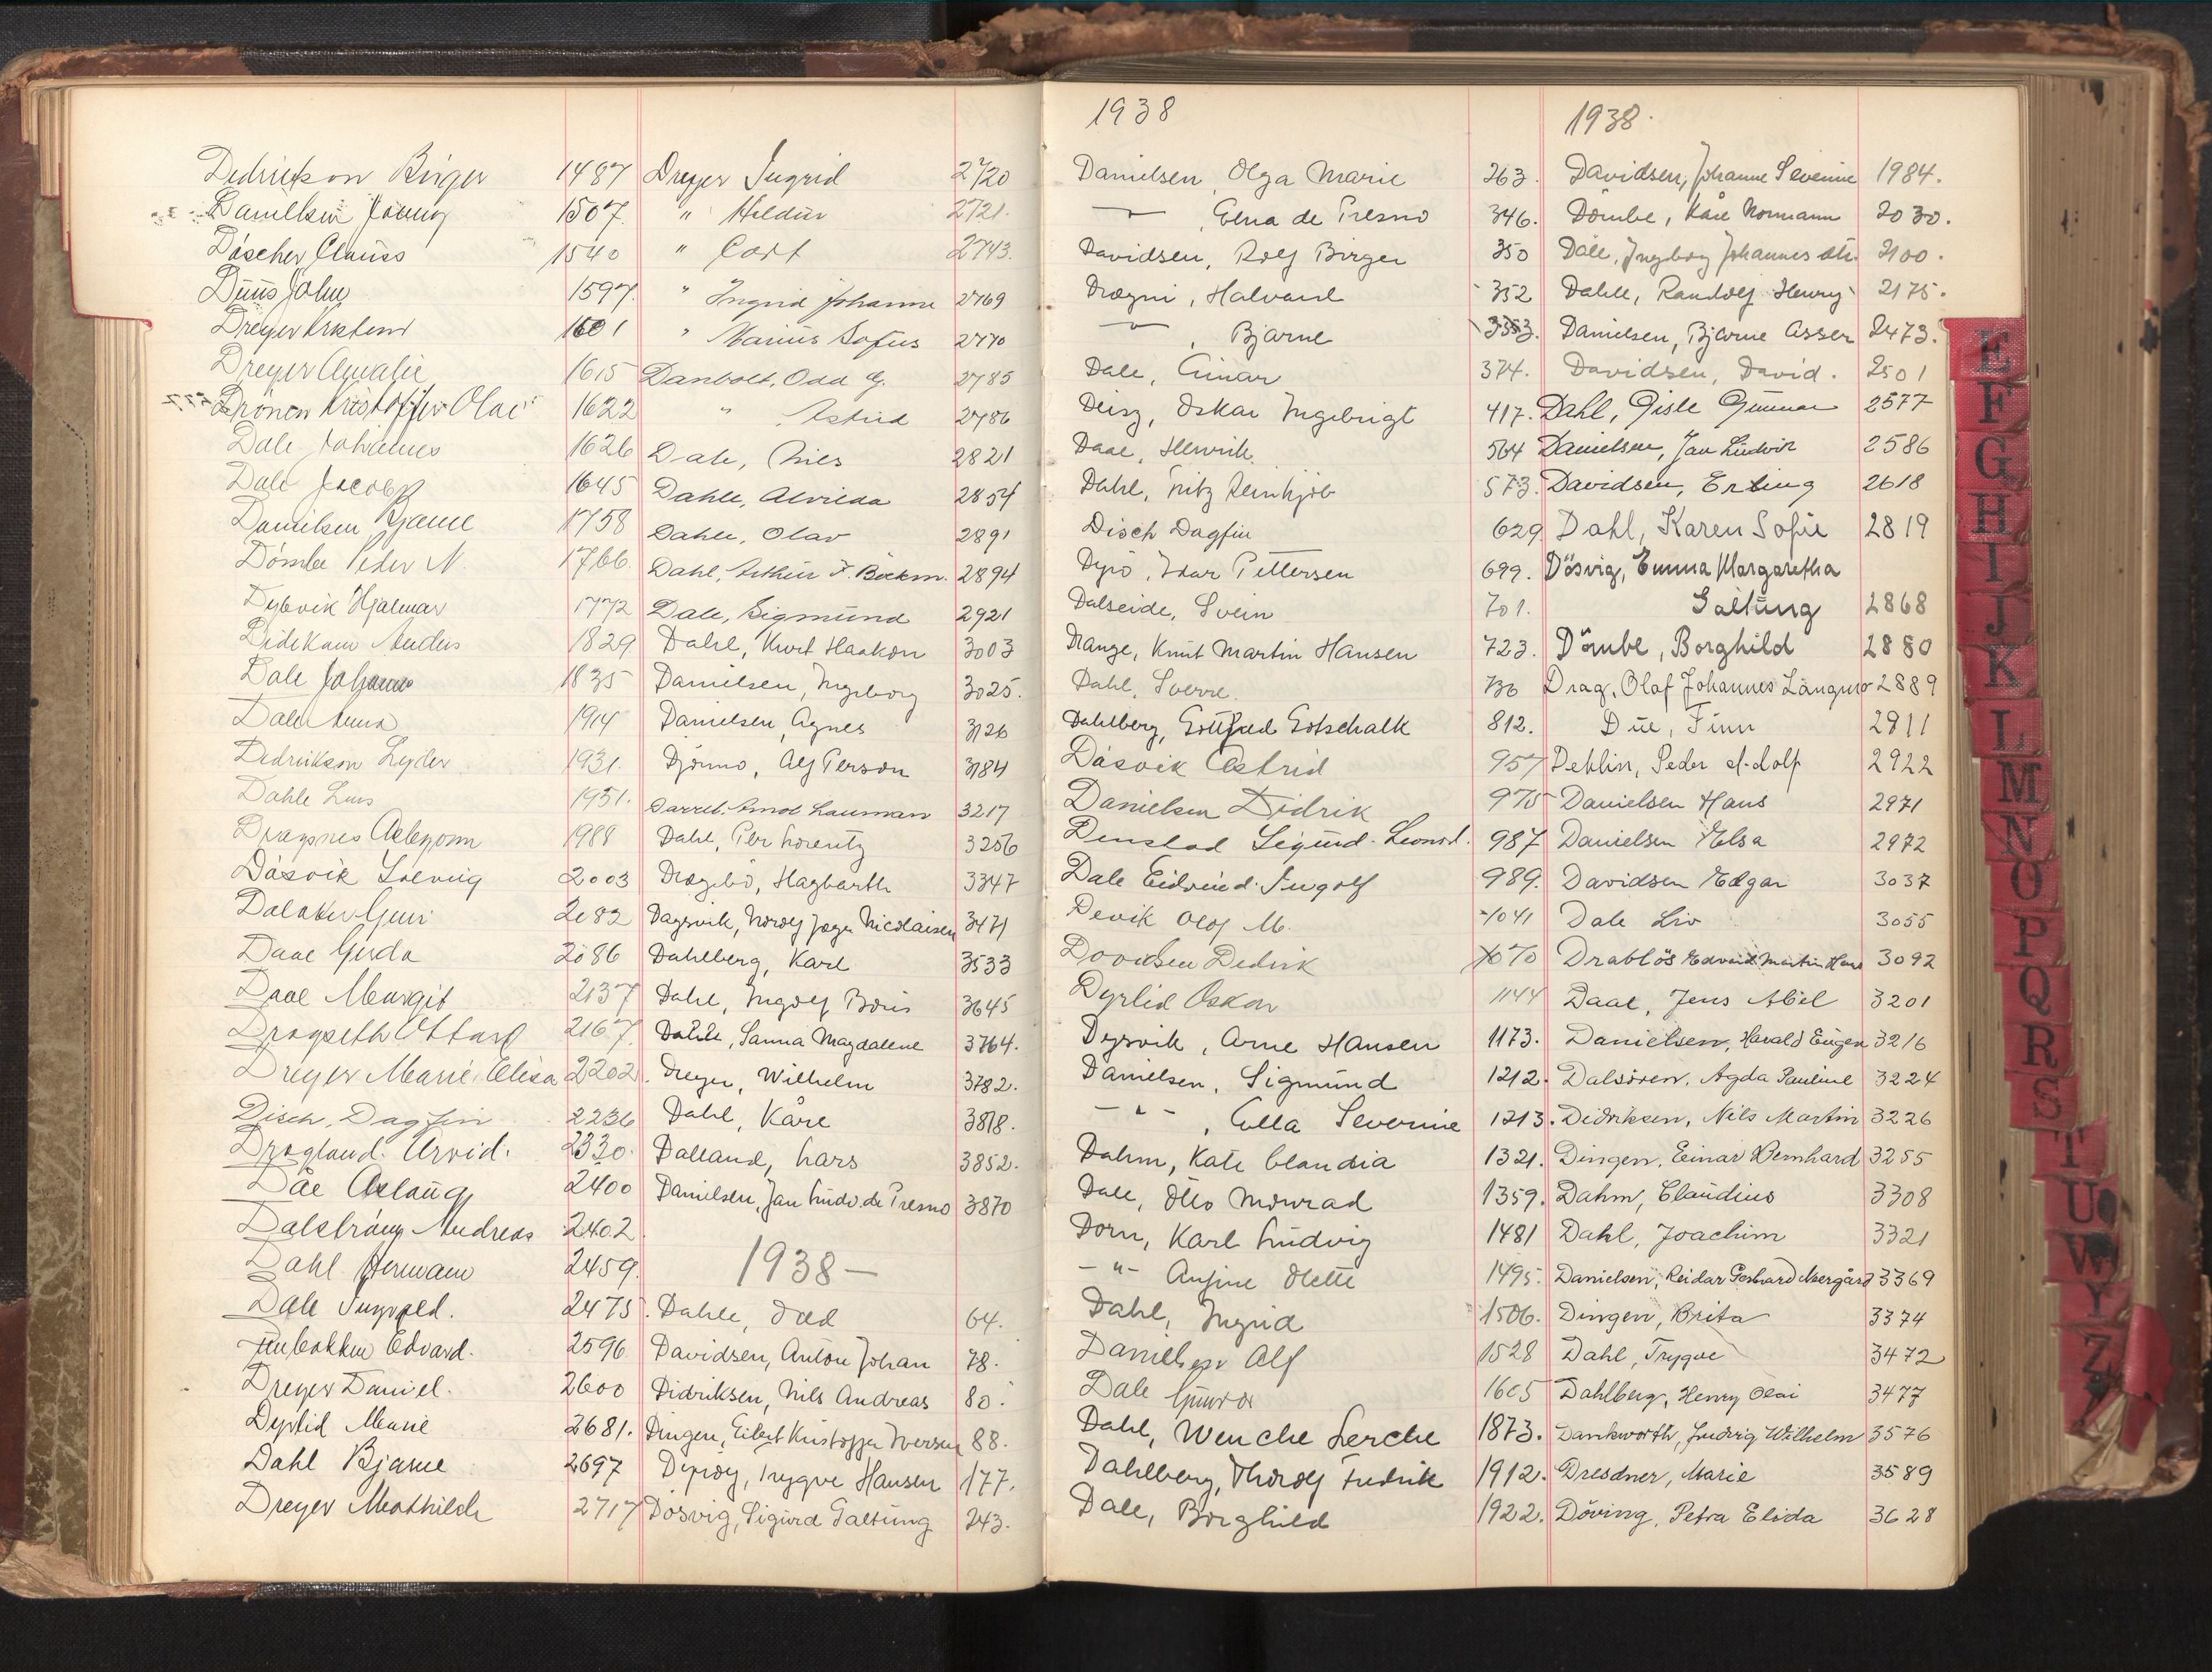 Dedrikson Birger 1487
Danielsen 1507.
Däscher Clauss 1540
Duus John 1597.
Dreyer Kristend 1601
Dreyer Amalie 1615
Drönen Kristoffer Olai 1622
Dale Johannes 1626
Dale Jacob 1645
Danielsen Bjarne 1758
Dömbe Peder N. 1766.
Dybvik Hjalmar 1772
Didrikson Anders 1829
Dale Johannes 1835
Dale Anna 1914
Dedrikson Lyder 1931.
Dahle Lars 1951.
Dragsnes Asbjorn 1988
Dåsvik Solveig 2003
Dalaker Gerd 2082
Daae Gerda 2086
Daae Margit 2137
Dragseth Ottar 2167.
Dreyer Marie Elisa 2202.
Disch, Dagfin 2236
Dragland. Arvid. 2330.
Dåe Aslaug 2400
Dalstrång Andreas 2402
Dahl Hermann 2459.
Dale Ingvald. 2475.
Edvard. 2596.
Dreyer Daniel. 2600
Dyrlid Marie 2681.
Dahl Bjarne 2697
Dreyer Mathilde 2717
Dreyer Ingrid 2720
" Hildur 2721.
" Cort 2743.
" Ingrid Johanne 2769
" Marius Sofus 2770
Danbolt, Odd G. 2785
" , Astrid 2786
Dale, Nils 2821
Dahle, Alvilda 2854
Dahle, Olav 2891
Dahl, Arthur F. Böckm. 2894
Dale, Sigmund 2921
Dahl, Kurt Haakon 3003
Danielsen, Ingeborg 3025.
Danielsen, Agnes 3126
Djönno, Alf Person 3184
Darrel. Arnol Lauman 3217
Dahl, Per Lorentz 3256
Drægebö, Hagbarth 3347
Dagsvik, Nordolf Jæger Nicolaisen 3471
Dahlberg, Karl 3533
Dahl, Ingolf Boris 3645
Dahle, Sanna Magdalene 3764.
Dreyer, Wilhelm 3782.
Dahl, Kåre 3818.
Dalland, Lars 3852.
Danielsen, Jan Ludv. de Presno 3870
1938 –
Dahle, Odd 64.
Davidsen, Anton Johan 78.
Didriksen, Nils Andreas 80.
Dingen, Eilert Kristoffer Iversen 88.
Dyröy, Trygve Hansen 177.
Dösvig, Sigurd Galtung 243.
1938
Danielsen, Olga Marie 263.
— , Elna de Presno 346.
Davidsen, Rolf Birger 350
Drægni, Halvard 352
— , Bjarne 353.
Dale, Einar 374.
Deisz, Oskar Ingebrigt 417.
Daae, Henrik. 564
Dahl, Fritz Reinhjob 573.
Disch Dagfin 629
Dyrö, Ivar Pettersen 699.
Dalseide, Svein 701.
Drange, Knut Martin Hansen 723.
Dahl, Sverre. 730
Dahlberg, Gottfred Gotschalk 812.
Dåsvik Astrid 957
Danielsen Didrik 975
Denstad Sigurd. Leonard. 987
Dale Eidvind. Ingolf 989.
Devik Olof M. 1041
Davidsen Dedrik 1070
Dyrlid Oskar 1144
Dyrvik, Arne Hansen 1173.
Danielsen, Sigmund 1212.
– " – , Ella Severine 1213.
Dahm, Kate Claudia 1321.
Dale, Otto Monrad 1359.
Dorn, Karl Ludvig 1481
– " – Anfine Olette 1495.
Dahl, Ingrid 1506.
Danielsen Alf 1528
Dale Gunvor 1605
Dahl, Wenche Lerche 1873.
Dahlberg, Thorolf Fredrik 1912.
Dale, Borghild 1922.
1938.
Davidsen, Johanne Severine 1984.
Dömbe, Kåre Normann 2030.
Dale, Ingeborg Johannes dtr. 2100.
Dahle, Randolf Henry 2175.
Danielsen, Bjarne Asser 2473.
Davidsen, David. 2501
Dahl, Gisle Gunnar 2577
Danielsen, Jan Ludvik 2586
Davidsen, Erling 2618
Dahl, Karen Sofie 2819
Dösvig, Emma Margaretha
Galtung 2868
Dömbe, Borghild 2880
Drag, Olaf Johannes Langmo 2889
Due, Finn 2911
Dehlin, Peder Adolf 2922
Danielsen Hans 2971
Danielsen Elsa 2972
Davidsen Edgar 3037
Dale Liv 3055
Drablös Edvard Martin Hans 3092
Daae, Jens Abel 3201
Danielsen, Harald Eugen 3216
Dalsören, Agda Pauline 3224
Didriksen, Nils Martin 3226
Dingen, Einar Bernhard 3255
Dahm, Claudius 3308
Dahl, Joachim 3321
Danielsen, Reidar Gerhard Nergård 3369
Dingen, Brita 3374
Dahl, Trygve 3472
Dahlberg, Henry Olai 3477
Dankworth, Ludvig Wilhelm 3576
Dresdner, Marie 3589
Döving, Petra Elida 3628
E
F
G
H
I
J
K
L
M
N
O
P
Q
R
S
T
U
W
Y
Z